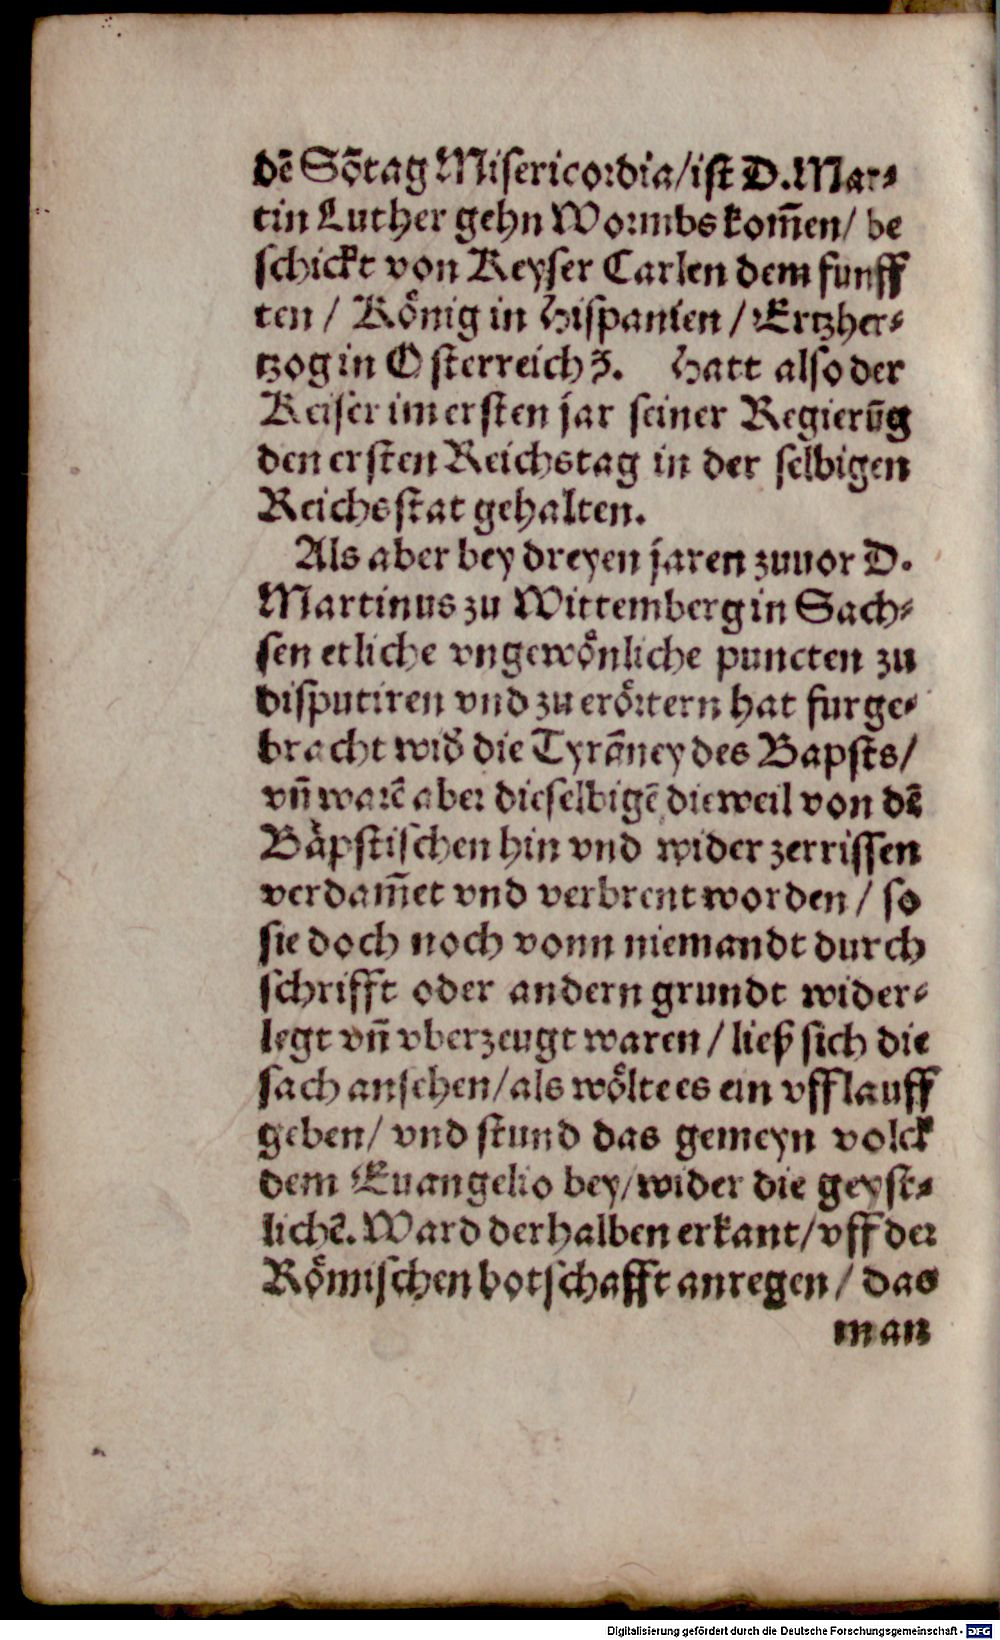 dē Sōtag Misericordia/ist D.Mar⸗
tin Luther gehn Wormbs kom̄en/ be
schickt von Keyser Carlen dem funff
ten / Koͤnig in Hispanien / Ertzher⸗
tzog in Osterreich ꝛ. Hatt also der
Keiser im ersten jar seiner Regierūg
den ersten Reichstag in der selbigen
Reichsstat gehalten.
Als aber bey dreyen jaren zuuor D.
Martinus zu Wittemberg in Sach⸗
sen etliche vngewoͤnliche puncten zu
disputiren vnd zu eroͤrtern hat furge⸗
bracht wid̕ die Tyrāney des Bapsts/
vn̄ warē aber dieselbigē dieweil von dē
Baͤpstischen hin vnd wider zerrissen
verdam̄et vnd verbrent worden / so
sie doch noch vonn niemandt durch
schrifft oder andern grundt wider⸗
legt vn̄ vberzeugt waren / ließ sich die
sach ansehen/als woͤlte es ein vfflauff
geben/ vnd stund das gemeyn volck
dem Euangelio bey/wider die geyst⸗
lichē. Ward derhalben erkant/vff der
Roͤmischen botschafft anregen / das
man
Digitalisierung gefördert durch die Deutsche Forschungsgemeinschaft - DFG